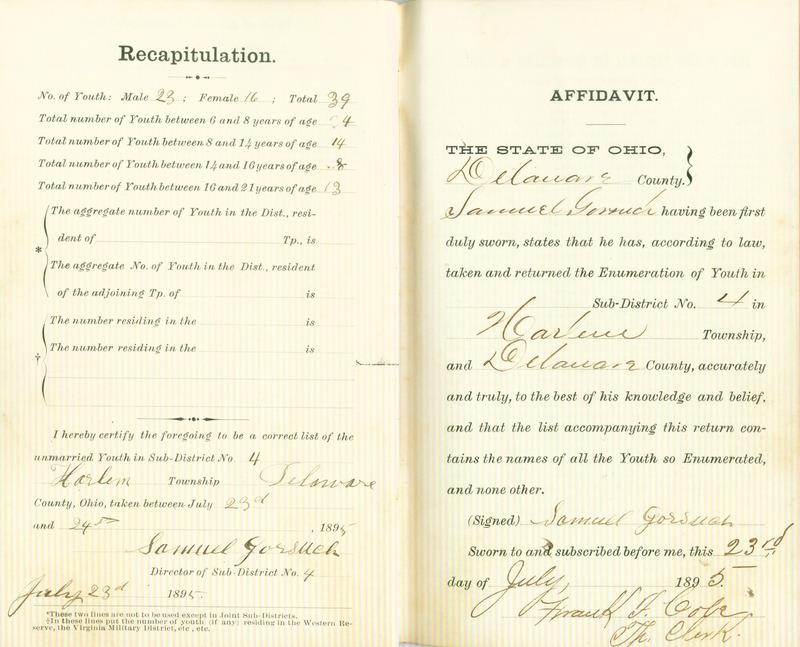 Recapitulation.
No. of Youth: Male 23; Female 16; Total 39
Total number of Youth between 6 and 8 years of age 4
Total number of Youth between 8 and 14 years of age 14
Total number of Youth between 14 and 16 years of age 8
Total number of Youth between 16 and 21 years of age 13
* The aggregate number of Youth in the Dist., resi-
dent of Tp., is
The aggregate No. of Youth in the Dist., resident
of the adjoining Tp. of is
† The number residing in the is
The number residing in the is
I hereby certify the foregoing to be a correct list of the
unmarried Youth in Sub-District No. 4
Harlem Township Delaware
County, Ohio, taken between July 23d
and 24th, 1895
Samuel Gorsuch
Director of Sub-District No. 4
July 23d 1895.
*These two lines are not to be used except in Joint Sub-Districts.
†In these lines put the number of youth (if any) residing in the Western Re-
serve, the Virginia Military District, etc., etc.
AFFIDAVIT.
THE STATE OF OHIO,
Delaware County.
Samuel Gorsuch having been first
duly sworn, states that he has, according to law,
taken and returned the Enumeration of Youth in
Sub-District No. 4 in
Harlem Township,
and Delaware County, accurately
and truly, to the best of his knowledge and belief,
and that the list accompanying this return con-
tains the names of all the Youth so Enumerated,
and none other.
(Signed) Samuel Gorsuch
Sworn to and subscribed before me, this 23rd
day of July 1895.
Frank J. Cobe
Th. Clerk.